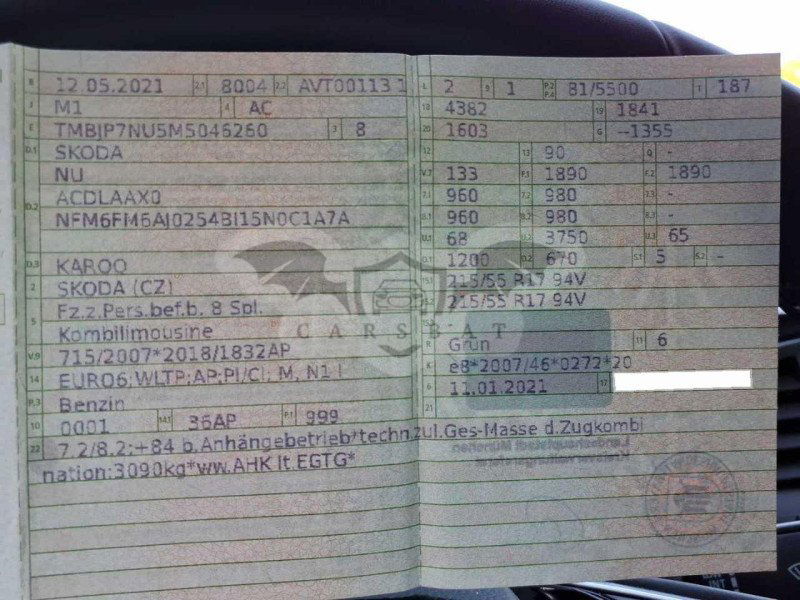 B 12.05.2021 2.1 8004 2.2 AVT00113 1
J M1 4 AC
E TMBJP7NU5M5046260 3 8
D.1 SKODA
NU
D.2 ACDLAAX0
NFM6FM6AJ0254BI15N0C1A7A
D.3 KAROQ
2 SKODA (CZ)
5 Fz.z.Pers.bef.b. 8 Spl.
Kombilimousine
V.9 715/2007*2018/1832AP
14 EURO6;WLTP;AP;PI/CI; M, N1 I
P.3 Benzin
10 0001 14.1 36AP P.1 999
22 7.2/8.2:+84 b.Anhängebetrieb*techn.zul.Ges-Masse d.Zugkombi
nation:3090kg*ww.AHK lt.EGTG*
L 2 9 1 P.2 P.4 81/5500 T 187
18 4382 19 1841
20 1603 G --1355
12 13 90 Q -
V.7 133 F.1 1890 F.2 1890
7.1 960 7.2 980 7.3 -
8.1 960 8.2 980 8.3 -
U.1 68 U.2 3750 U.3 65
O.1 1200 O.2 670 S.1 5 S.2 -
15.1 215/55 R17 94V
15.2 215/55 R17 94V
15.3
R Grün 11 6
K e8*2007/46*0272*20
6 11.01.2021 17
21
CARSBAT